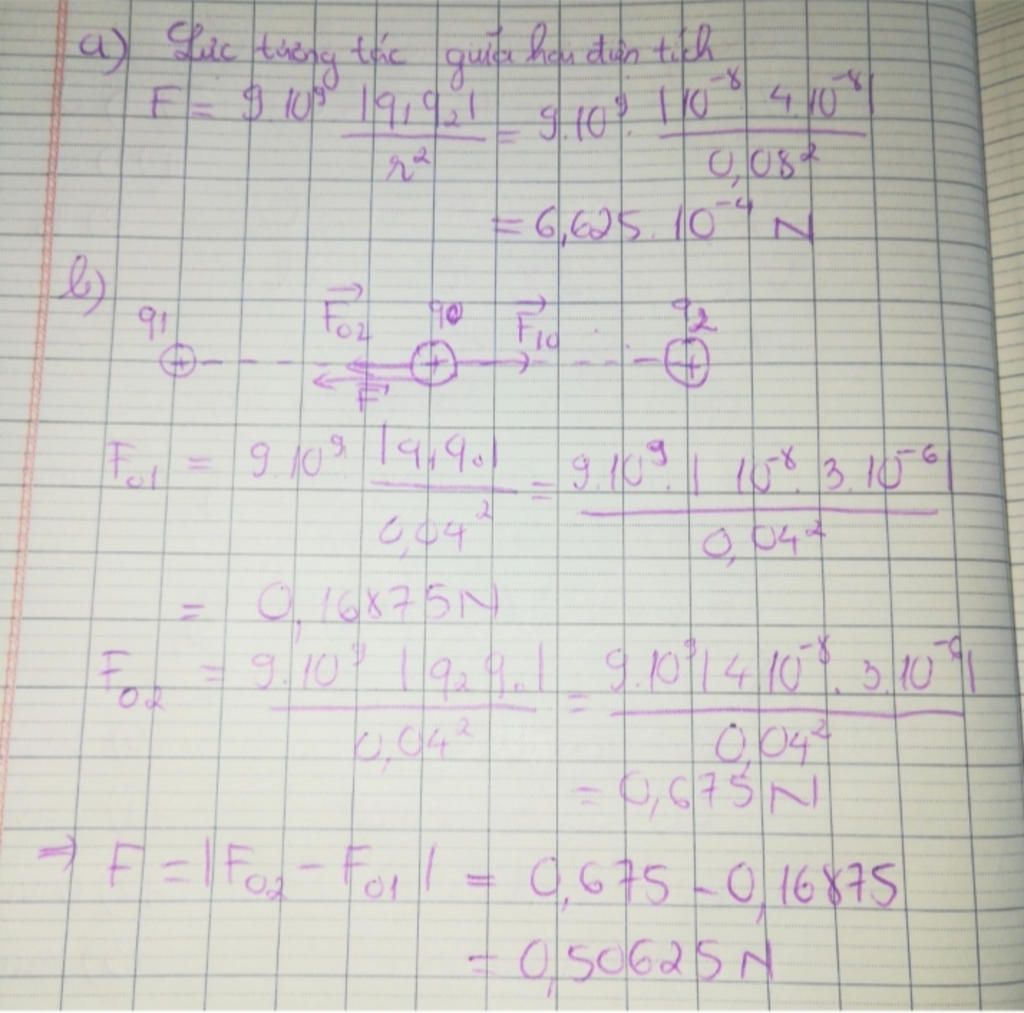 a) Lực tương tác giữa hai điện tích
F = 9.10⁹ |q₁q₂| / r² = 9.10⁹. |10⁻⁸ 4.10⁻⁸| / 0,08²
= 6,625.10⁻⁴ N
b)
q₁ F₀₂ q₀ F₁₀ q₂
F
F₀₁ = 9.10⁹. |q₁q₀| / 0,04² = 9.10⁹.| 10⁻⁸. 3.10⁻⁶| / 0,04²
= 0,16875N
F₀₂ = 9.10⁹ |q₂q₀| / 0,04² = 9.10⁹|4 10⁻⁸. 3.10⁻⁶| / 0,04²
= 0,675N
⇒ F = |F₀₂ - F₀₁| = 0,675 - 0,16875
= 0,50625N